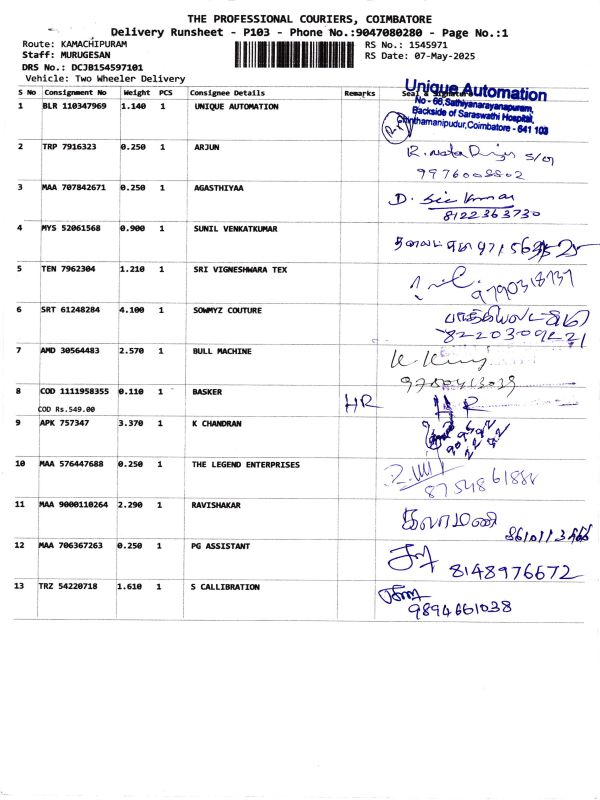 THE PROFESSIONAL COURIERS, COIMBATORE
Delivery Runsheet - P103 - Phone No.:9047080280 - Page No.:1
Route: KAMACHIPURAM RS No.: 1545971
Staff: MURUGESAN RS Date: 07-May-2025
DRS No.: DCJB154597101
Vehicle: Two Wheeler Delivery
S No Consignment No Weight PCS Consignee Details Remarks Seal &
Unique Automation
No - 66, Sathiyanarayanapuram,
Backside of Saraswathi Hospital,
Chinthamanipudur, Coimbatore - 641 103
1 BLR 110347969 1.140 1 UNIQUE AUTOMATION
2 TRP 7916323 0.250 1 ARJUN R. S/o
9976008802
3 MAA 707842671 0.250 1 AGASTHIYAA D. Kumar
8122363730
4 MYS 52061568 0.900 1 SUNIL VENKATKUMAR
5 TEN 7962304 1.210 1 SRI VIGNESHWARA TEX
6 SRT 61248284 4.100 1 SOWMYZ COUTURE
8220309221
7 AMD 30564483 2.570 1 BULL MACHINE K.
8 COD 1111958355 0.110 1 BASKER HR HR
COD Rs.549.00
9 APK 757347 3.370 1 K CHANDRAN
10 MAA 576447688 0.250 1 THE LEGEND ENTERPRISES
11 MAA 9000110264 2.290 1 RAVISHAKAR கலாமணி
12 MAA 706367263 0.250 1 PG ASSISTANT
8148976672
13 TRZ 54220718 1.610 1 S CALLIBRATION
9894661038